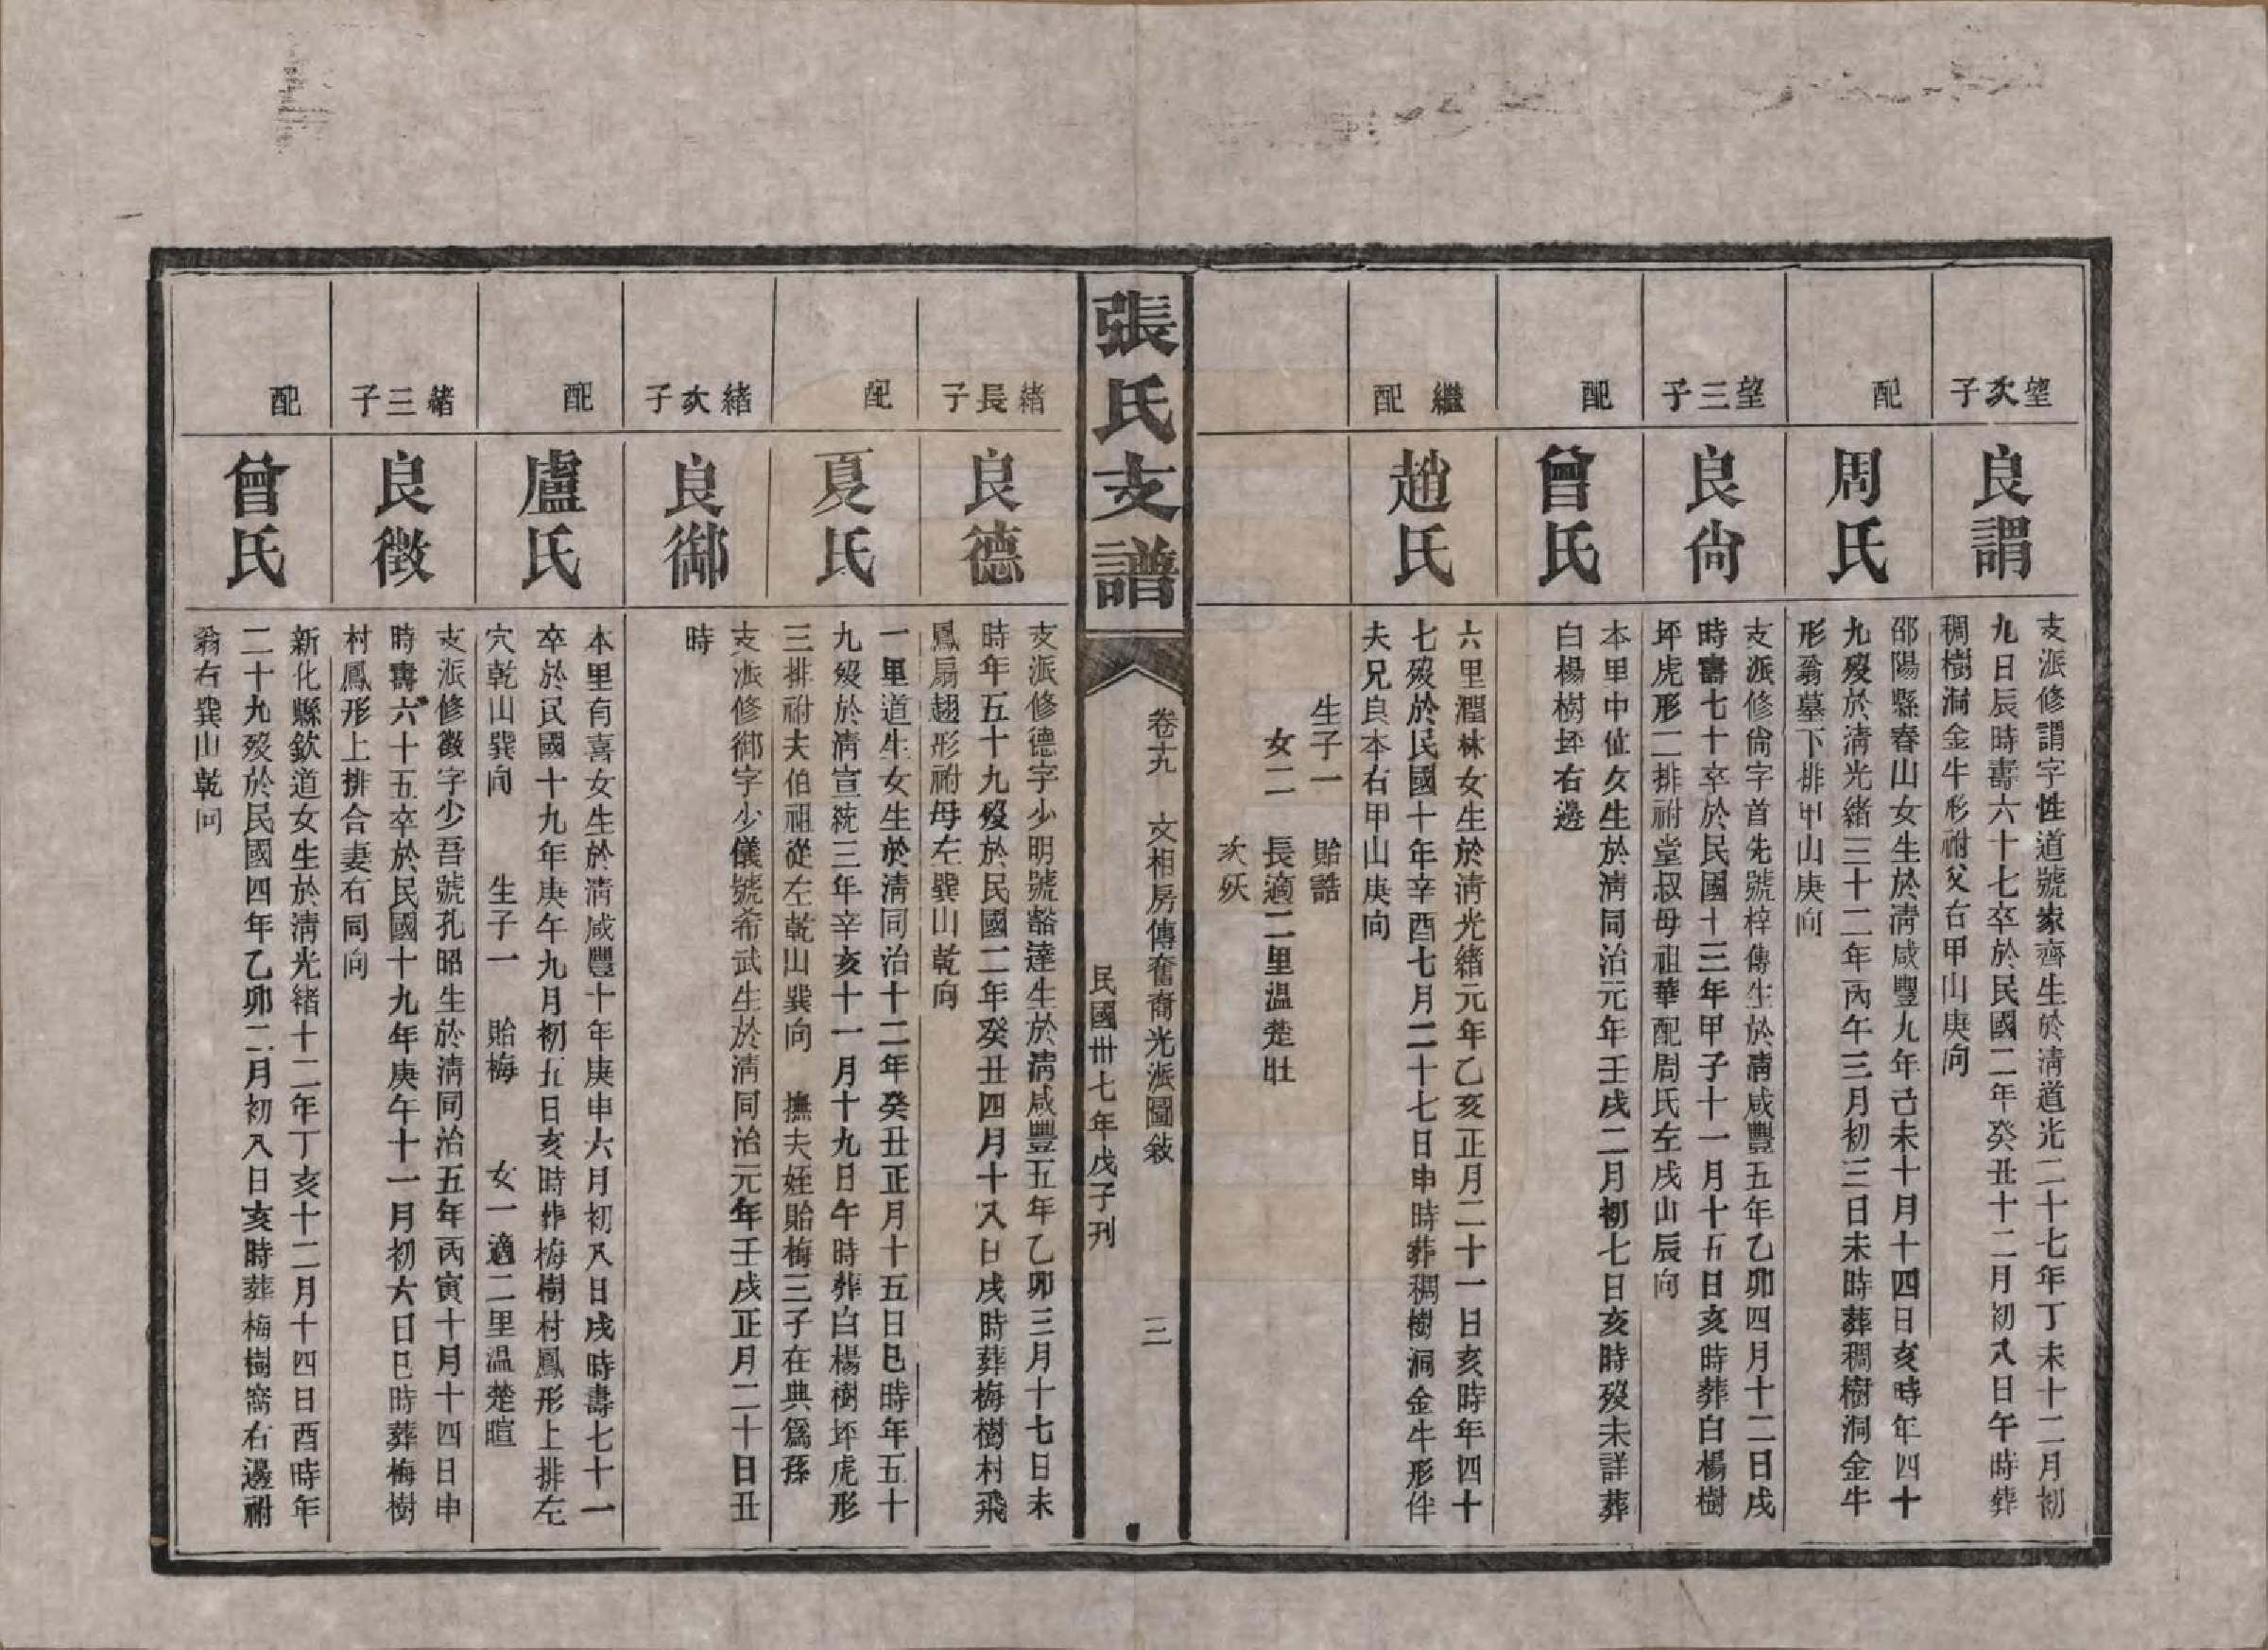 望次子
良謂
支派修謂字性道號家齊生於清道光二十七年丁未十二月初
九日辰時壽六十七卒於民國二年癸丑十二月初八日午時葬
稠樹洞金牛形祔父右甲山庚向
配
周氏
邵陽縣春山女生於清咸豐九年己未十月十四日亥時年四十
九歿於清光緒三十二年丙午三月初三日未時葬稠樹洞金牛
形翁墓下排甲山庚向
望三子
良尙
支派修尙字首先號梓傳生於清咸豐五年乙卯四月十二日戌
時壽七十卒於民國十三年甲子十一月十五日亥時葬白楊樹
坪虎形二排祔堂叔母祖華配周氏左戌山辰向
配
曾氏
本里中位女生於清同治元年壬戌二月初七日亥時歿未詳葬
白楊樹坪右邊
繼配
趙氏
六里潤林女生於清光緒元年乙亥正月二十一日亥時年四十
七歿於民國十年辛酉七月二十七日申時葬稠樹洞金牛形伴
夫兄良本右甲山庚向
生子一 貽誥
女二 長適二里温楚壯
次殀
張氏支譜
卷十九 文相房傳奮裔光派圖敘 三
民國卅七年戊子刊
緒長子
良德
支派修德字少明號豁達生於清咸豐五年乙卯三月十七日未
時年五十九歿於民國二年癸丑四月十八日戌時葬梅樹村飛
鳳扇翅形祔母左巽山乾向
配
夏氏
一里道生女生於清同治十二年癸丑正月十五日巳時年五十
九歿於清宣統三年辛亥十一月十九日午時葬白楊樹坪虎形
三排祔夫伯祖從左乾山巽向 撫夫姪貽梅三子在典爲孫
緒次子
良御
支派修御字少儀號希武生於清同治元年壬戌正月二十日丑
時
配
盧氏
本里有喜女生於清咸豐十年庚申六月初八日戌時壽七十一
卒於民國十九年庚午九月初五日亥時葬梅樹村鳳形上排左
穴乾山巽向 生子一 貽梅 女一適二里温楚暄
緒三子
良徵
支派修徵字少吾號孔昭生於清同治五年丙寅十月十四日申
時壽六十五卒於民國十九年庚午十一月初六日巳時葬梅樹
村鳳形上排合妻右同向
配
曾氏
新化縣欽道女生於清光緒十二年丁亥十二月十四日酉時年
二十九歿於民國四年乙卯二月初八日亥時葬梅樹窩右邊祔
翁右巽山乾向